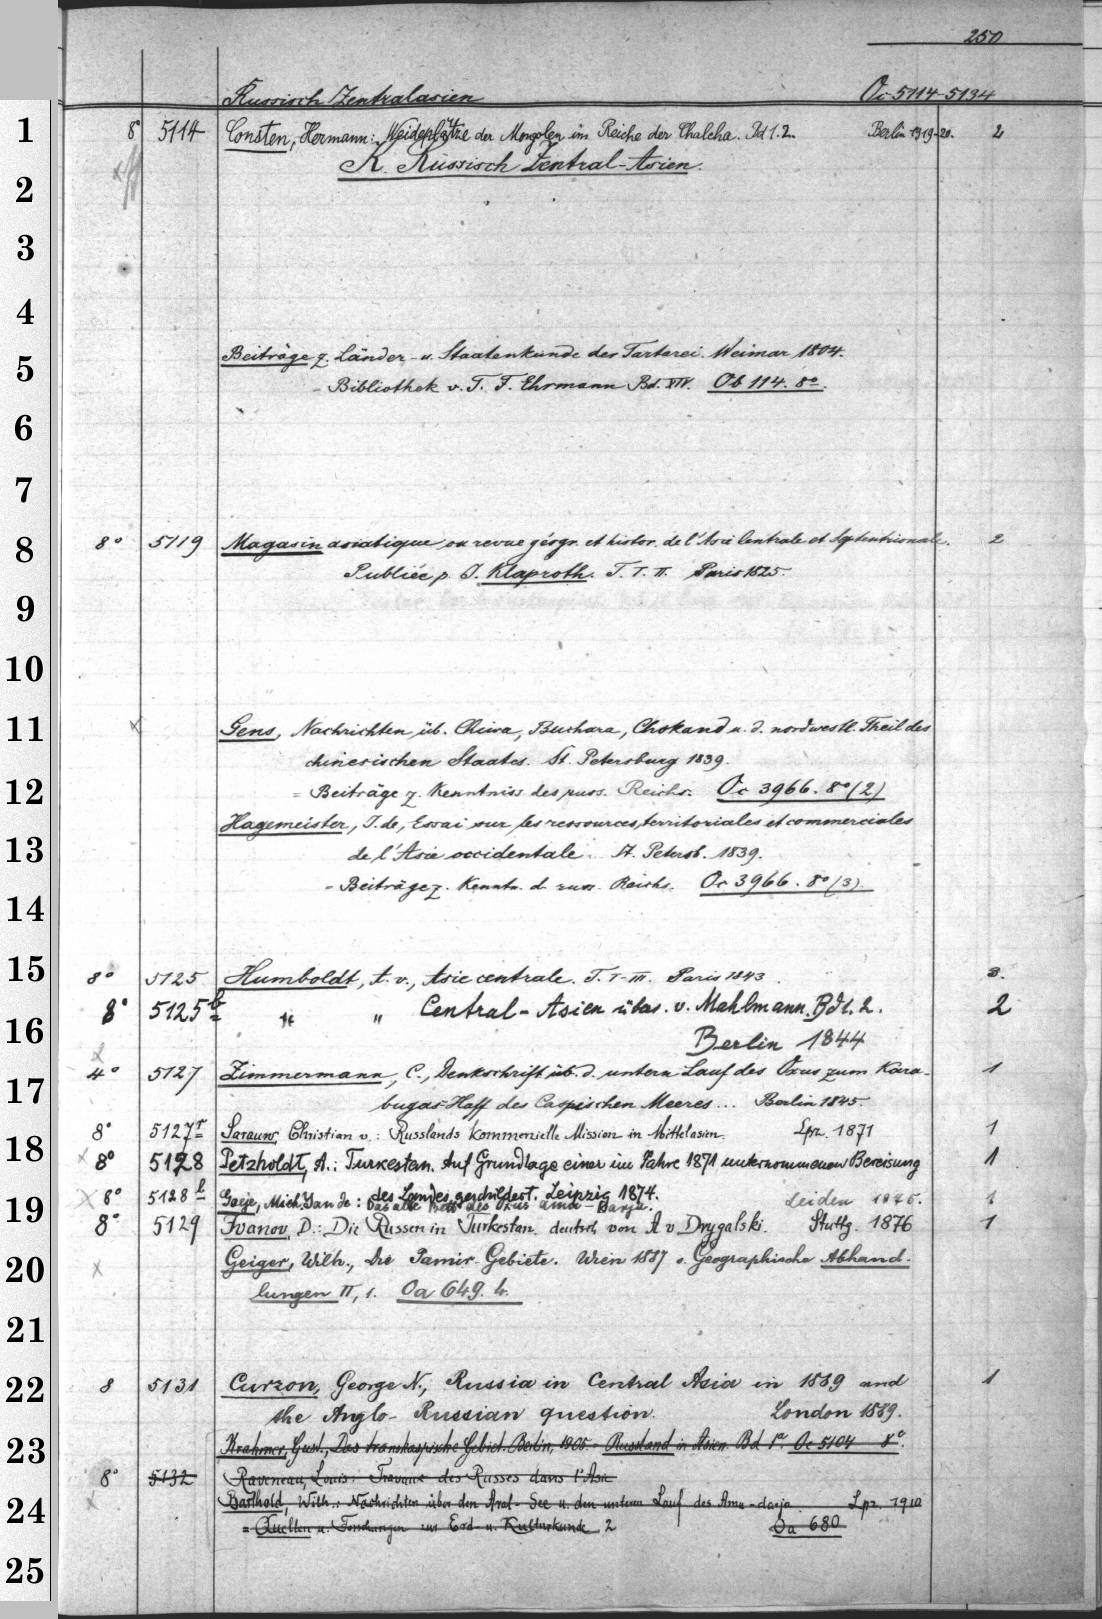 250
Russisch Zentralasien Oc 5114-5134
1
8° 5114 Consten, Hermann: Weideplätze der Mongolen im Reiche der Chalcha. Bd 1.2. Berlin 1919-20. 2
K. Russisch Zentral-Asien.
2
3
4
Beiträge z. Länder- u. Staatenkunde der Tartarei. Weimar 1804.
5
= Bibliothek v. T. F. Ehrmann Bd. XIV. Ob 114. 8°.
6
7
8
8° 5119 Magasin asiatique ou revue géogr. et histor. de l'Asie Centrale et Septentrionale. 2
Publiée p. J. Klaproth. T. I. II. Paris 1825.
9
10
11
Gens, Nachrichten üb. Chiwa, Buchara, Chokand u. d. nordwestl. Theil des
chinesischen Staates. St. Petersburg 1839.
12
= Beiträge z. Kenntniss des russ. Reichs. Oc 3966. 8° (2)
Hagemeister, J. de, Essai sur les ressources territoriales et commerciales
13
de l'Asie occidentale. St. Petersb. 1839.
= Beiträge z. Kenntn. d. russ. Reichs. Oc 3966. 8° (3).
14
15
8° 5125 Humboldt, A. v., Asie centrale. T. I-III. Paris 1843. 3.
8° 5125b " " Central-Asien übers. v. Mahlmann. Bd 1. 2. 2
16
Berlin 1844
4° 5127 Zimmermann, C., Denkschrift üb. d. untern Lauf des Oxus zum Kara-
1
17
bugas-Haff des Caspischen Meeres... Berlin 1845.
8° 5127r Sarauw, Christian v.: Russlands kommerzielle Mission in Mittelasien. Lpz. 1871 1
18
8° 5128 Petzholdt, A.: Turkestan. Auf Grundlage einer im Jahre 1871 unternommenen Bereisung 1
des Landes geschildert. Leipzig 1874.
19
8° 5128b Goeje, Mich. Jan de: Das alte Bett des Oxus Amû-Darja. Leiden 1875. 1
8° 5129 Ivanov, D.: Die Russen in Turkestan. deutsch von A v Drygalski. Stuttg. 1876 1
Geiger, Wilh., Die Pamir-Gebiete. Wien 1887 s. Geographische Abhand-
20
lungen II, 1. Oa 649. 4.
21
22
8 5131 Curzon, George N., Russia in Central Asia in 1889 and 1
the Anglo-Russian question. London 1889.
23
Krahmer, Gust., Das transkaspische Gebiet. Berlin, 1905. = Russland in Asien Bd 1a. Oc 5104 8°.
8° 5132 Raveneau, Louis: Travaux des Russes dans l'Asie
24
Barthold, Wilh.: Nachrichten über den Aral-See u. den unteren Lauf des Amu-darja. Lpz. 1910
= Quellen u. Forschungen zur Erd- u. Kulturkunde 2 Oa 680
25